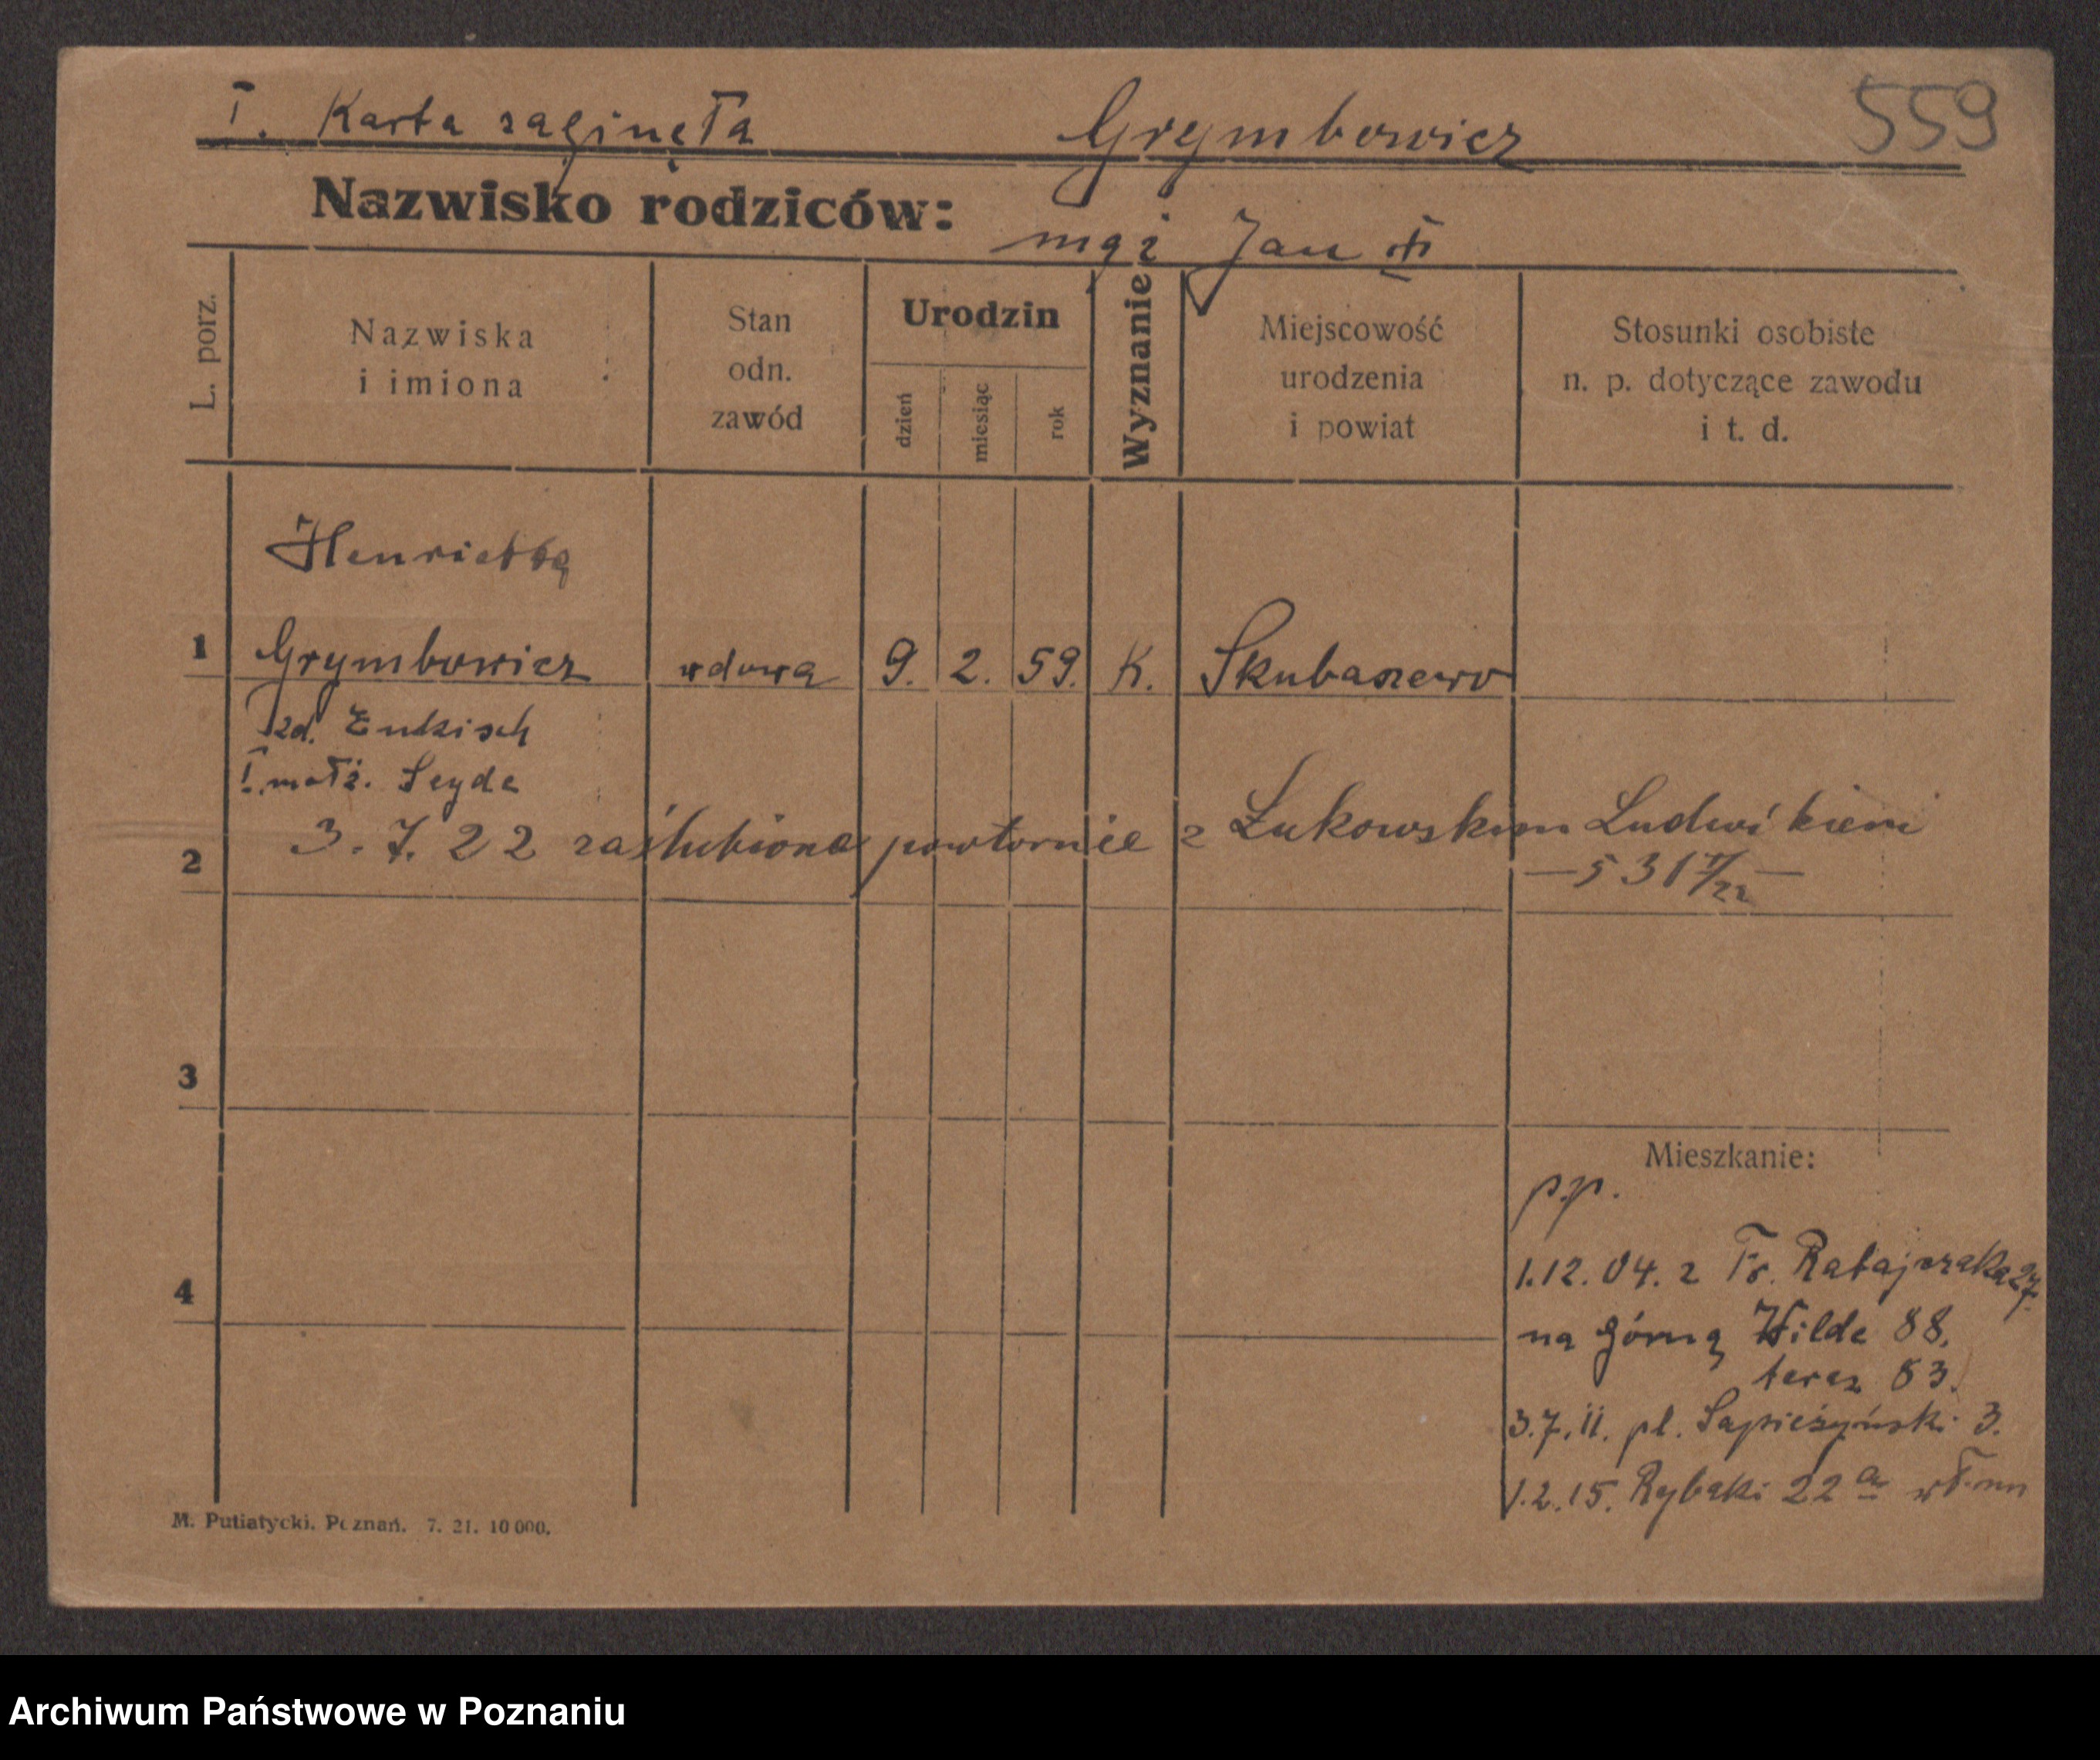 I. Karta zaginęła Grymbowicz 559
Nazwisko rodziców:
mąż Jan
L. porz.
Nazwiska i imiona
Stan odn. zawód
Urodzin
dzień
miesiąc
rok
Wyznanie
Miejscowość urodzenia i powiat
Stosunki osobiste n. p. dotyczące zawodu i t. d.
Henrietta
1 Grymbowicz wdowa 9. 2. 59. K. Skubarzewo
zd.
I. małż. Seyde
2 3. 7. 22 zaślubiona powtornie z Łukowskim Ludwikiem
3
Mieszkanie:
p.p.
1.12.04. z Fr. Ratajczaka 27.
4
na Górną Wilde 88.
teraz 83.
3.7.11. pl. Sapieżyński 3.
1.2.15. Rybaki 22a
M. Putiatycki. Poznań. 7. 21. 10 000.
Archiwum Państwowe w Poznaniu